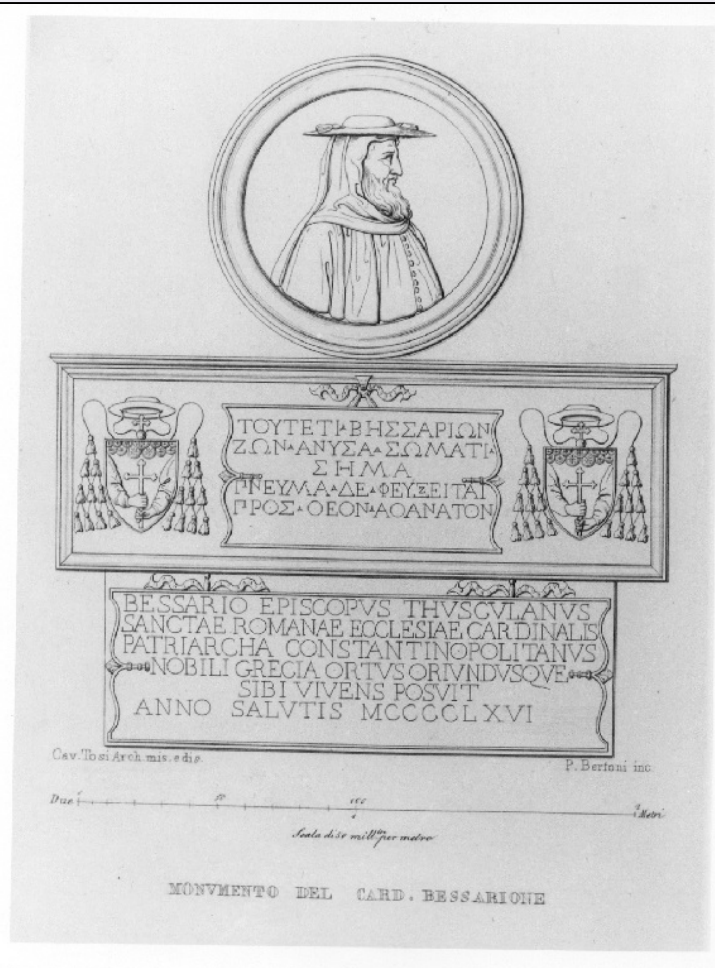 ΤΟΥΤΕΤΙ▴ΒΗΣΣΑΡΙΩΝ
ΖΩΝ▴ΑΝΥΣΑ▴ΣΩΜΑΤΙ▴
ΣΗΜΑ
ΠΝΕΥΜΑ▴ΔΕ▴ΦΕΥΞΕΙΤΑΙ
ΠΡΟΣ▴ΘΕΟΝ▴ΑΘΑΝΑΤΟΝ
BESSARIO EPISCOPVS THVSCVLANVS
SANCTAE ROMANAE ECCLESIAE CARDINALIS
PATRIARCHA CONSTANTINOPOLITANVS
NOBILI GRECIA ORTVS ORIVNDVSQVE
SIBI VIVENS POSVIT
ANNO SALVTIS MCCCCLXVI
Cav. Tosi Arch. mis. e dis.
P. Bertoni inc.
Due 50 100 2 Metri
Scala di 50 mill. per metro
MONVMENTO DEL CARD. BESSARIONE